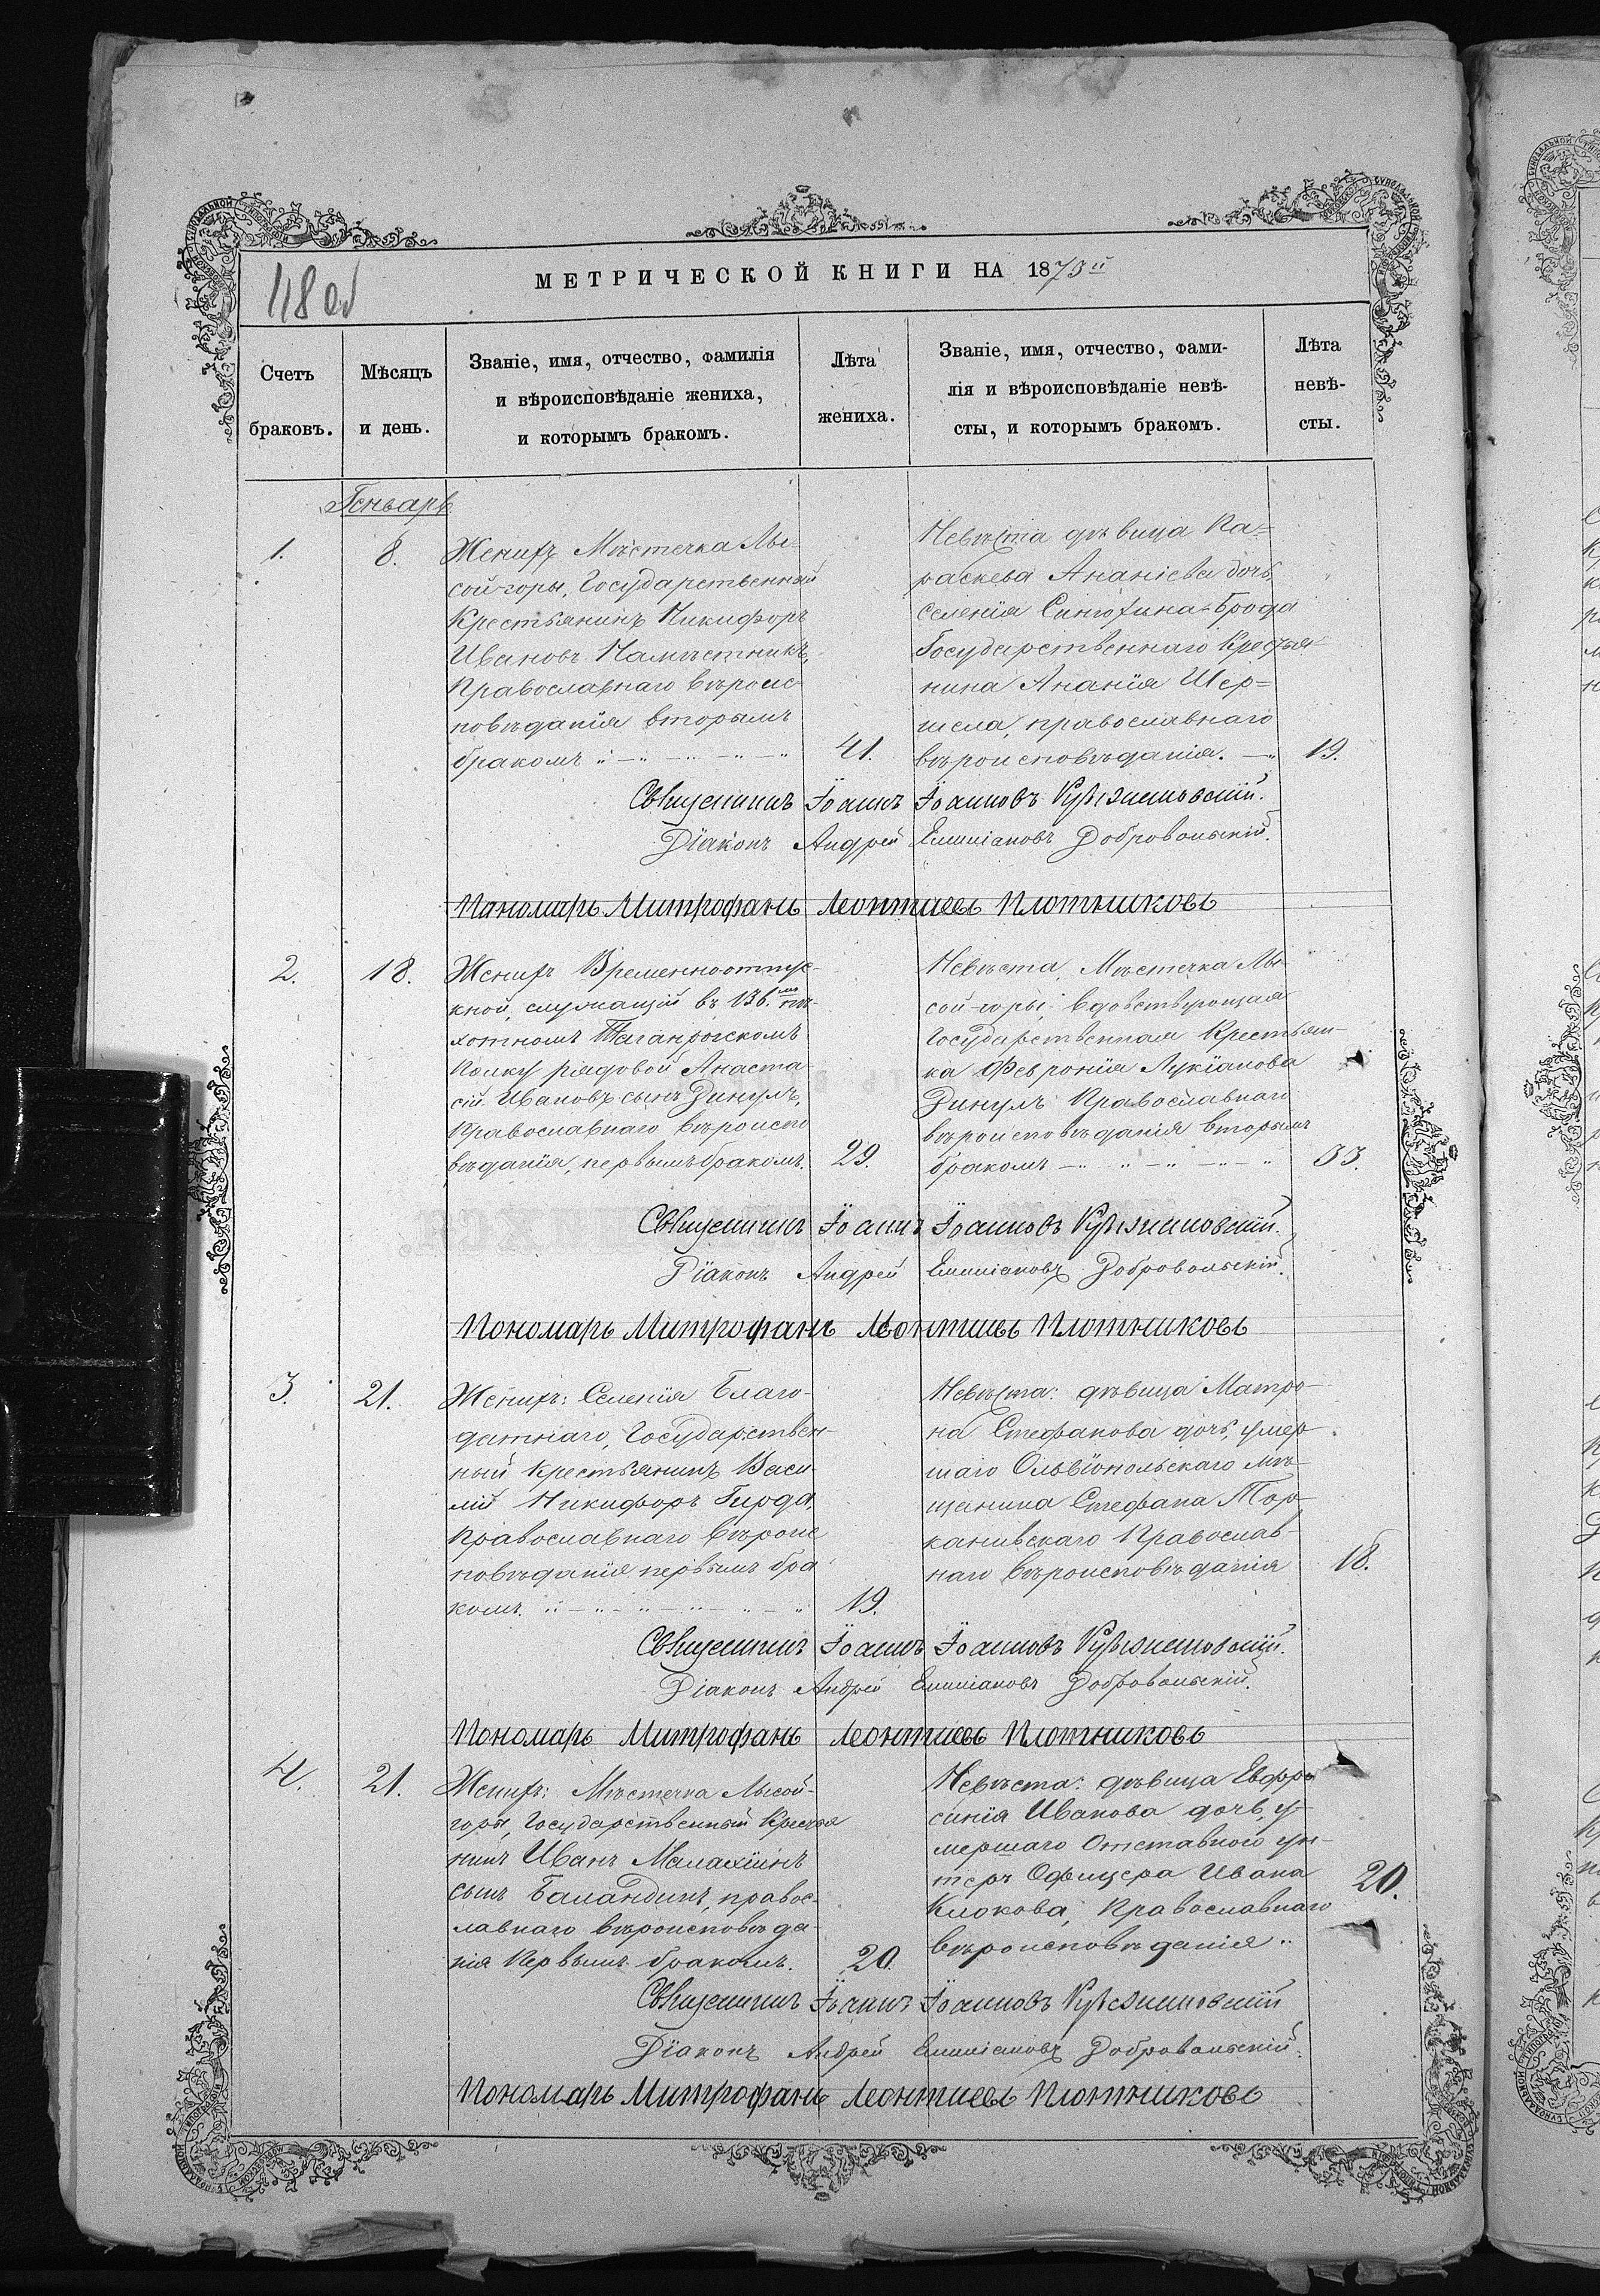 МЕТРИЧЕСКОЙ КНИГИ НА 1873й
118 об
Счетъ браковъ.
Мѣсяцъ и день.
Званіе, имя, отчество, фамилія
и вѣроисповѣданіе жениха,
и которымъ бракомъ.
Лѣта
жениха.
Званіе, имя, отчество, фами-
лія и вѣроисповѣданіе невѣ-
сты, и которымъ бракомъ.
Лѣта
невѣ-
сты.
Генварь
1.
8.
Женихъ Мѣстечка Лы-
сой-горы, Государственный
Крестьянинъ Никифоръ
Ивановъ Намѣстникъ,
Православнаго вѣроис-
повѣданія вторымъ
бракомъ
41.
Невѣста дѣвица Па-
раскева Ананіева дочь,
селенія Синюхина-Брода
Государственнаго Крестья
нина Ананія Шер-
шела, православнаго
вѣроисповѣданія.
19.
Священникъ Іоаннъ Іоанновъ
Діаконъ Андрей Емиліановъ Добровольскій.
Пономарь Митрофанъ Леонтиевъ Плотниковъ
2.
18.
Женихъ Временноотпус-
кной, служащій въ 136.мъ пѣ-
хотномъ Таганрогскомъ
Полку рядовой Анаста
сій Ивановъ сынъ Зинулъ,
Православнаго вѣроиспо
вѣданія, первымъ бракомъ.
29.
Невѣста, Мѣстечка Лы-
сой-горы, вдовствующая
Государственная Крестьян-
ка Февронія Лукіанова
Зинулъ Православнаго
вѣроисповѣданія вторымъ
бракомъ
33.
Священникъ Іоаннъ Іоанновъ
Діаконъ Андрей Емиліановъ Добровольскій.
Пономарь Митрофанъ Леонтиевъ Плотниковъ
3.
21.
Женихъ: Селенія Благо-
датнаго, Государствен-
ный крестьянинъ Васи-
лій Никифоръ Гирда,
Православнаго вѣроис
повѣданія первымъ бра
комъ.
19.
Невѣста: дѣвица Матро-
на Стефанова дочь, умер-
шаго Ольвіопольскаго мѣ-
щанина Стефана Тор-
канивскаго Православ-
наго вѣроисповѣданія
18.
Священникъ Іоаннъ Іоанновъ
Діаконъ Андрей Емиліановъ Добровольскій.
Пономарь Митрофанъ Леонтиевъ Плотниковъ
4.
21.
Женихъ: Мѣстечка Лысой-
горы, Государственный Крестья
нинъ Иванъ Малахіинъ
сынъ Баландинъ, правос-
лавнаго вѣроисповѣда-
нія Первымъ бракомъ.
20.
Невѣста: дѣвица Евфро
синія Иванова дочь, у-
мершаго Отставного ун-
теръ Офицера Ивана
Клокова, Православнаго
вѣроисповѣданія
20.
Священникъ Іоаннъ Іоанновъ
Діаконъ Андрей Емиліановъ Добровольскій.
Пономарь Митрофанъ Леонтиевъ Плотниковъ